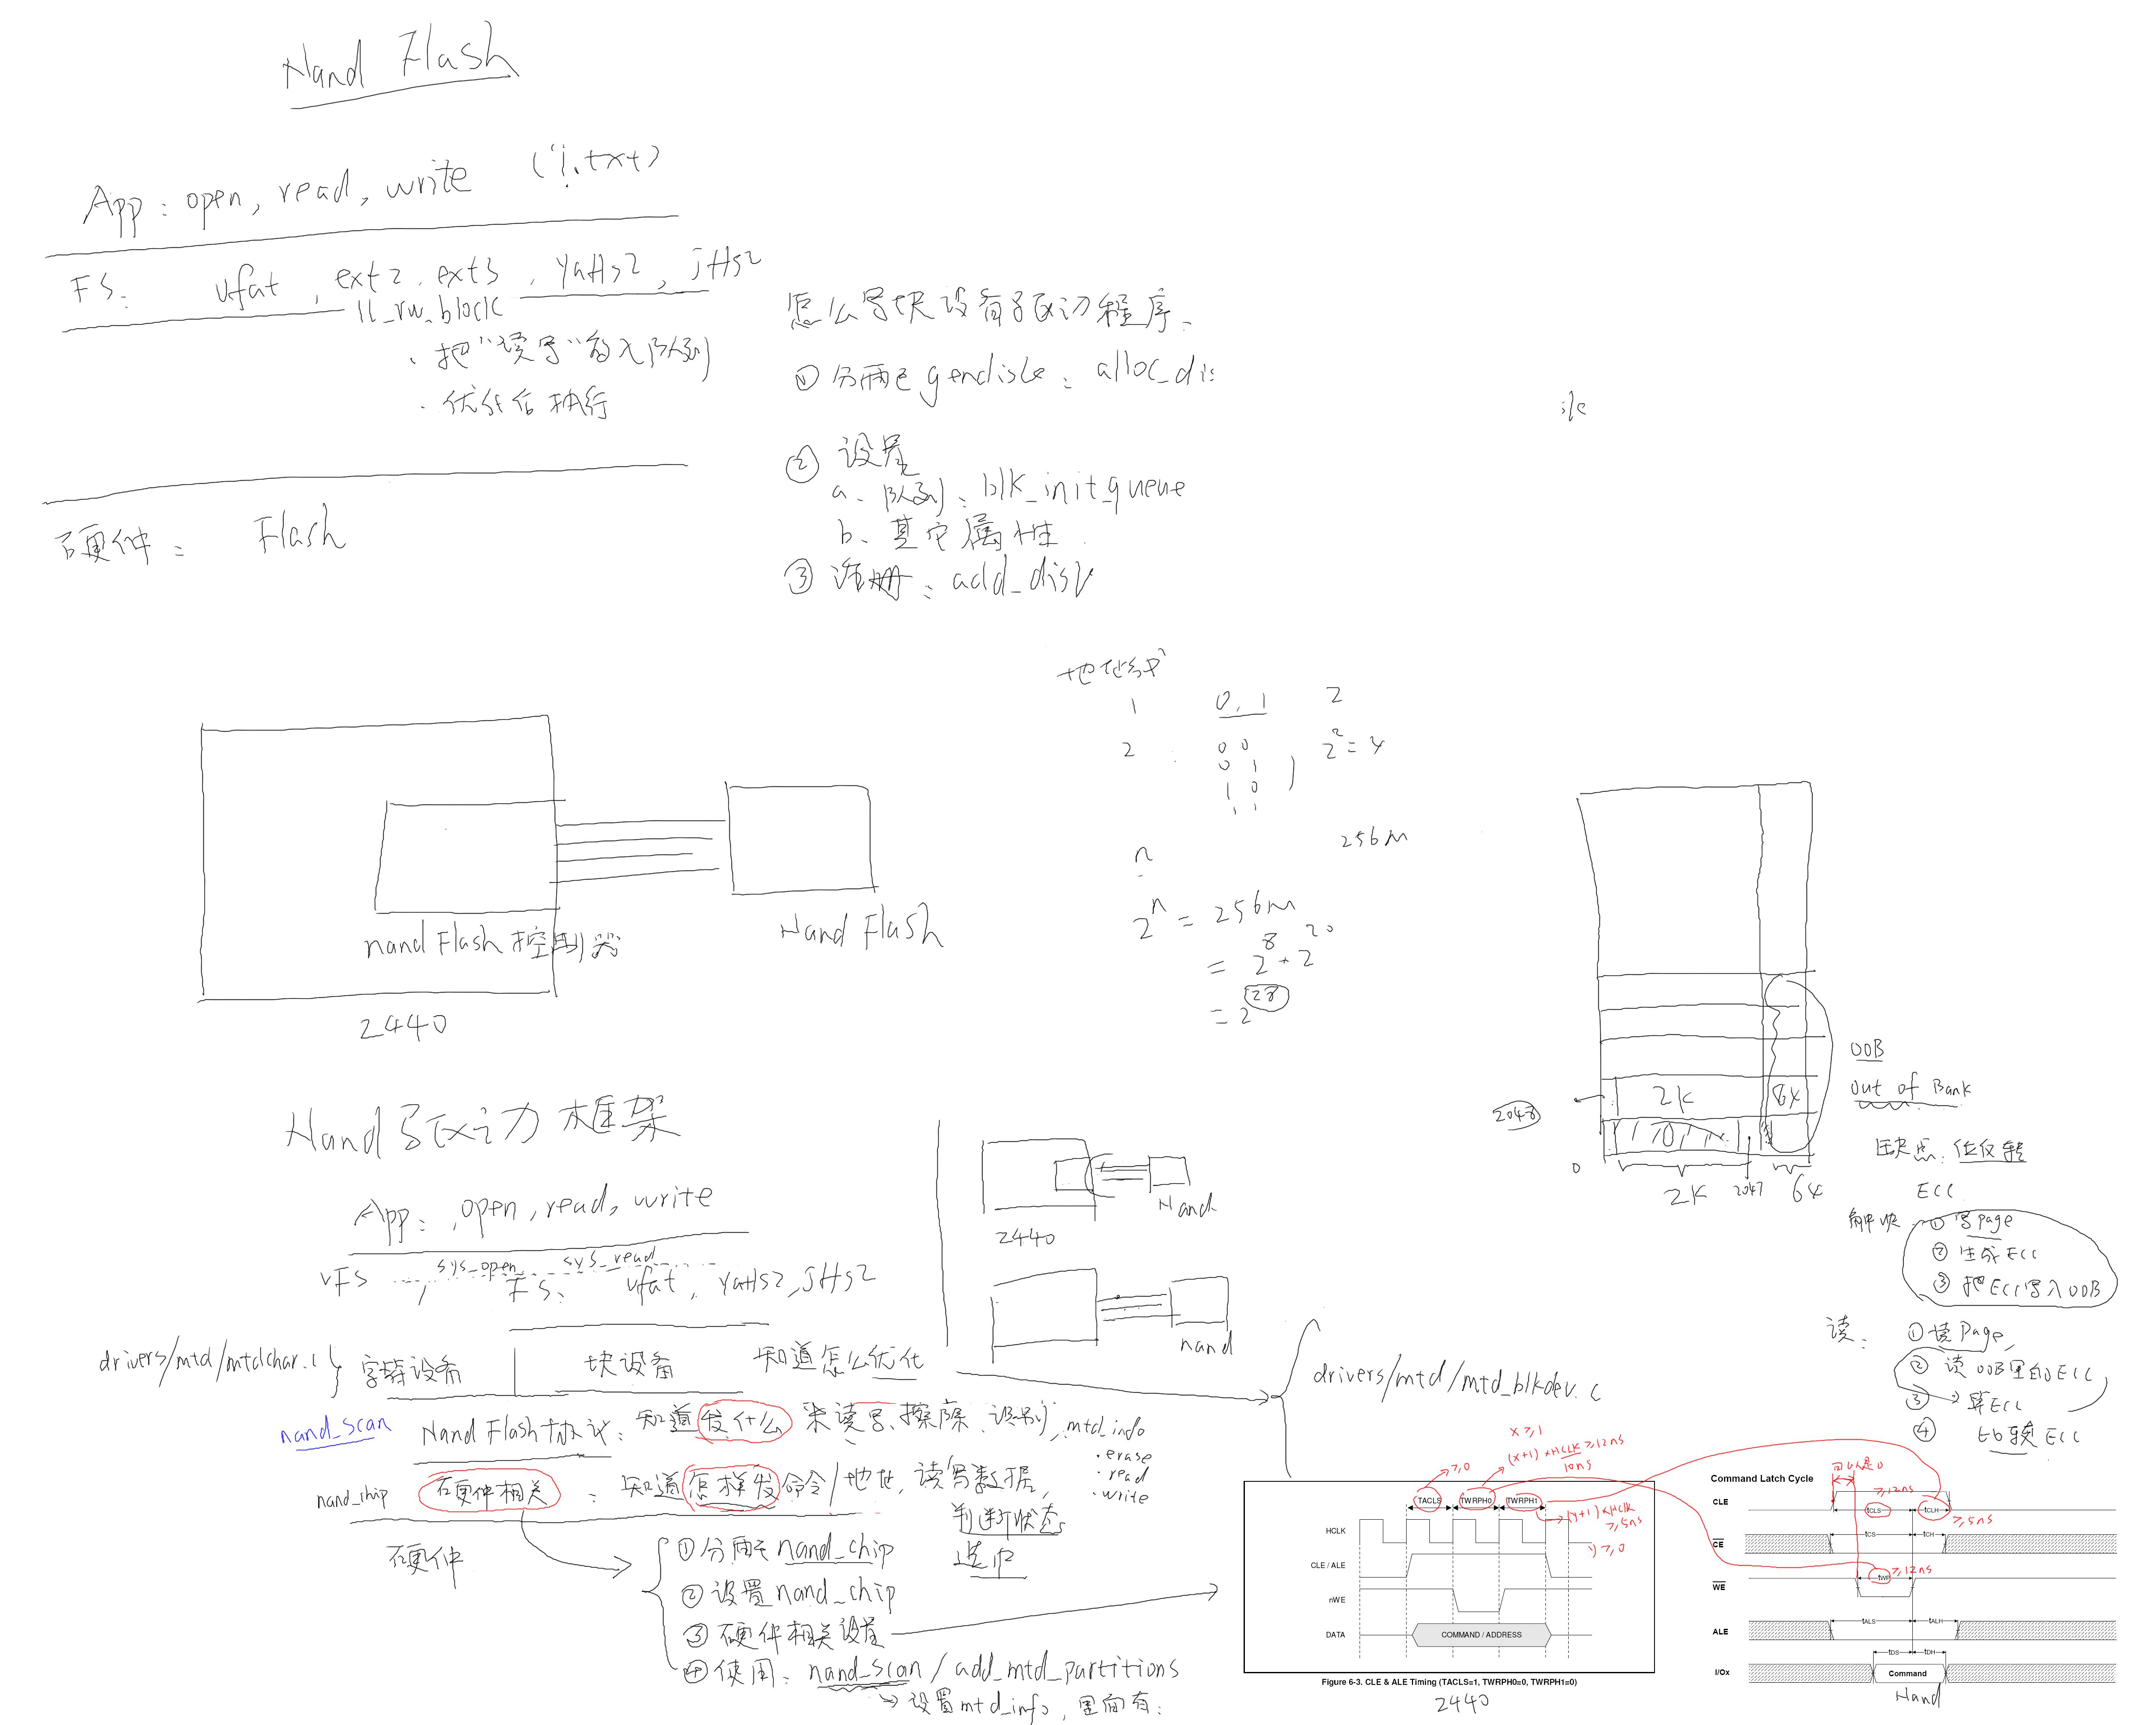 Nand Flash
App: open, read, write ("1.txt)
FS: vfat, ext2, ext3, yaffs2, jffs2
ll_rw_block
. 把"读写"放入队列
. 优化后执行
硬件: Flash
怎么写块设备驱动程序.
① 分配 gendisk: alloc_dis
② 设置
a. 队列: blk_init_queue
b. 其它属性
③ 注册: add_disk
地址线
1 0, 1 2
2 00 2²=4
01
10
11
256M
n
2ⁿ = 256M
= 2⁸ * 2²⁰
= 2²⁸
nand Flash 控制器
Nand Flash
2440
2K 64
2048
0
2K 2047 64
OOB
Out of Bank
缺点: 位反转
ECC
解决 ① 写page
② 生成ECC
③ 把ECC写入OOB
读: ① 读Page,
② 读OOB里的ECC
③ 算ECC
④ 比较ECC
Nand 驱动框架
App: open, read, write
sys_open sys_read
VFS
FS: vfat, yaffs2, jffs2
drivers/mtd/mtdchar.c } 字符设备 块设备 知道怎么优化
nand_scan Nand Flash协议: 知道发什么来读写、擦除、识别, mtd_info
. erase
. read
. write
nand_chip 硬件相关: 知道怎样发命令/地址, 读写数据,
判断状态
选中
硬件
① 分配 nand_chip
② 设置 nand_chip
③ 硬件相关设置
④ 使用: nand_scan / add_mtd_partitions
设置mtd_info, 里面有:
Nand
2440
nand
drivers/mtd/mtd_blkdev.c
x≥1
(x+1) × HCLK ≥ 12ns
10ns
≥0
TACLS TWRPH0 TWRPH1
(y+1) × HCLK
≥5ns
y≥0
HCLK
CLE / ALE
nWE
DATA COMMAND / ADDRESS
Figure 6-3. CLE & ALE Timing (TACLS=1, TWRPH0=0, TWRPH1=0)
2440
Command Latch Cycle
可以是0
≥12ns
CLE tCLS tCLH
≥5ns
CE tCS tCH
WE tWP ≥12ns
ALE tALS tALH
tDS tDH
I/Ox Command
Nand